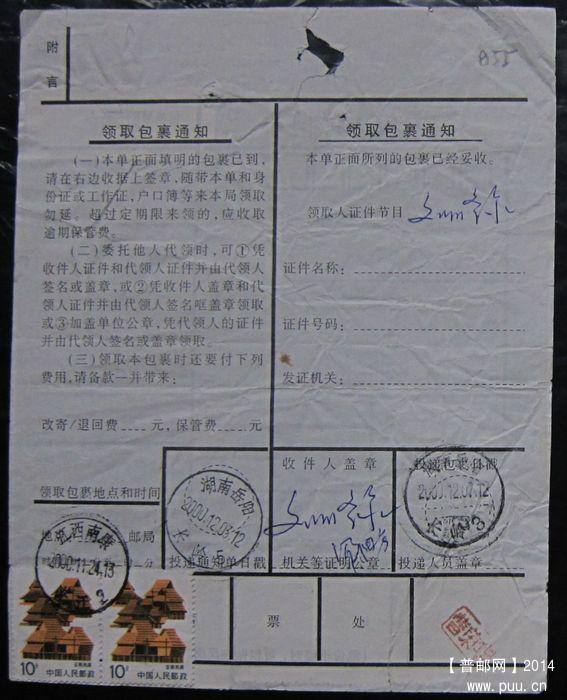 附言
A55
领取包裹通知
(一)本单正面填明的包裹已到,
请在右边收据上签章,随带本单和身
份证或工作证,户口簿等来本局领取
勿延。超过定期限来领的,应收取
逾期保管费。
(二)委托他人代领时,可①凭
收件人证件和代领人证件并由代领人
签名或盖章,或②凭收件人盖章和代
领人证件并由代领人签名哐盖章领取
或③加盖单位公章,凭代领人的证件
并由代领人签名或盖章领取。
(三)领取本包裹时还要付下列
费用,请备款一并带来:
改寄/退回费 元,保管费 元
领取包裹通知
本单正面所列的包裹已经妥收。
领取人证件节目
证件名称:
证件号码:
发证机关:
领取包裹地点和时间
邮局
分
湖南岳阳
2000.12.03.12
长岭
投递通知单日戳
收件人盖章
机关等证明公章
投递包裹日戳
2000.12.07.12
长岭3
投递人员盖章
江西南康
2000.11.24.15
2
票 处
10分
中国人民邮政
10分
中国人民邮政
【普邮网】2014
www.puu.cn